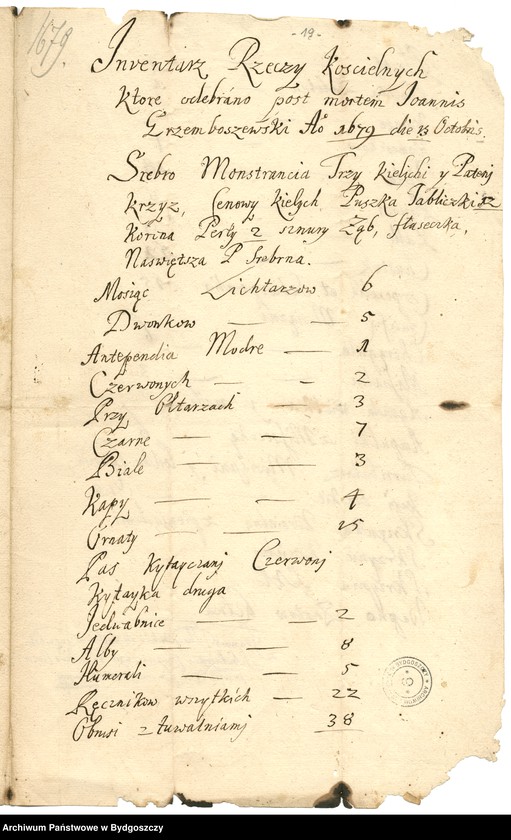 1679.
-19-
Inventarz Rzeczy Koscielnych
Ktore odebrano post mortem Joannis
Grzemboszewski Ao 1679 die 13 Octobris.
Srebro Monstrancia Trzy Kielichi y Patenj
Krzyz, Cenowy Kielych Puszka Tabliczki 12
Korina Perły 2 sznury Ząb, flaseczka,
Naswiętsza P Srebrna.
Mosiąc Lichtarzow 6
Dworkow — — 5
Antependia Modre — 1
Czerwonych — — 2
Przy Oltarzach — 3
Czarne — — 7
Biale — — 3
Kapy — — 4
Ornaty — — 25
Pas Kytayczanj Czerwonj
Kytayka druga
Jedwabnice — — 2
Alby — — 8
Humerali — — 5
Ręcznikow wszytkich — 22
Obrusi z tuwalniamj 38
Archiwum Państwowe w Bydgoszczy